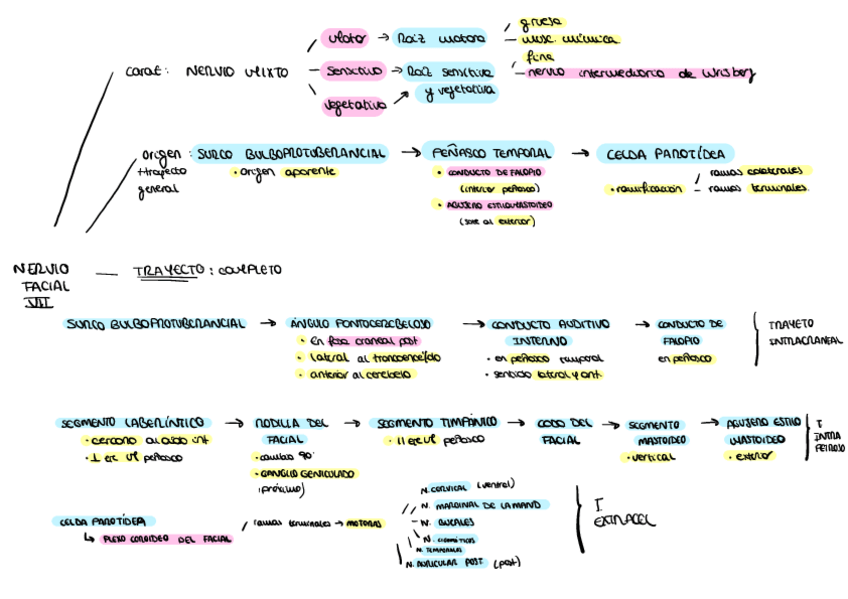 carat: NERVIO MIXTO
Motor → Raíz motora
gruesa
musc. mímica
Sensitivo → Raíz sensitiva
y vegetativa
fina
nervio intermediario de Wrisberg
Vegetativo
origen : SURCO BULBOPROTUBERANCIAL → PEÑASCO TEMPORAL → CELDA PAROTÍDEA
+trayecto
general
• origen aparente
• CONDUCTO DE FALOPIO
(interior peñasco)
• AGUJERO ESTILOMASTOIDEO
(sale al exterior)
• ramificación
ramas colaterales
ramas terminales.
NERVIO
FACIAL
VII
— TRAYECTO: COMPLETO
SURCO BULBOPROTUBERANCIAL → ÁNGULO PONTOCEREBELOSO → CONDUCTO AUDITIVO
INTERNO → CONDUCTO DE
FALOPIO
• en fosa craneal post
• lateral al troncoencéfalo
• anterior al cerebelo
• en peñasco temporal
• sentido lateral y ant.
en peñasco
TRAYETO
INTRACRANEAL
SEGMENTO LABERÍNTICO → RODILLA DEL
FACIAL → SEGMENTO TIMPÁNICO → CODO DEL
FACIAL → SEGMENTO
MASTOIDEO → AGUJERO ESTILO
MASTOIDEO
• cercano al oído int
• ⊥ eje peñasco
• cambio 90°
• GANGLIO GENICULADO
(próximo)
• // eje peñasco
• vertical
• exterior
T
INTRA
CELDA PAROTÍDEA
↳ PLEXO COROIDEO DEL FACIAL
ramas terminales → MOTORAS
N. CERVICAL (ventral)
N. MARGINAL DE LA MAND
N. BUCALES
N. CIGOMÁTICOS
N. TEMPORALES
N. AURICULAR POST (post)
T